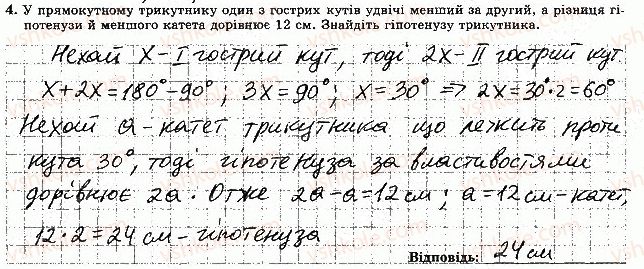 4. У прямокутному трикутнику один з гострих кутів удвічі менший за другий, а різниця гі-
потенузи й меншого катета дорівнює 12 см. Знайдіть гіпотенузу трикутника.
Нехай X - I гострий кут, тоді 2X - II гострий кут.
X+2X=180°-90°; 3X=90°; X=30° => 2X=30°·2=60°
Нехай a - катет трикутника що лежить проти
кута 30°, тоді гіпотенуза за властивостями
дорівнює 2a. Отже 2a-a=12см; a=12см-катет,
12·2=24 см-гіпотенуза
Відповідь: 24 см